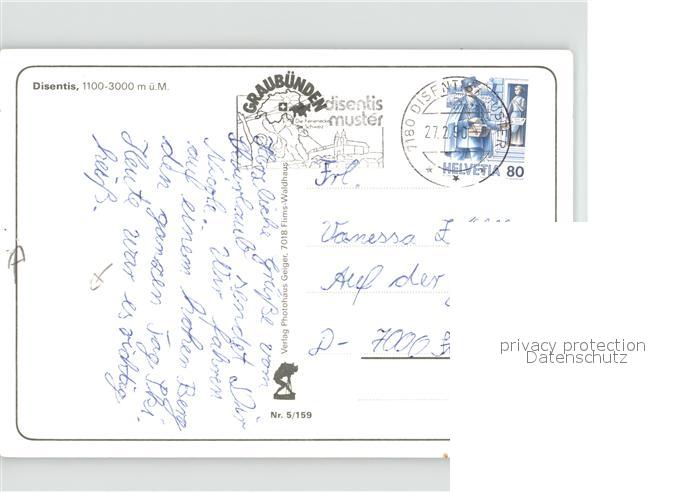 Disentis, 1100-3000 m ü.M.
GRAUBÜNDEN
disentis
muster
Die Ferienecke
der Schweiz
7180 DISENTIS/MUSTER
27.2.90
HELVETIA 80
Herzliche Grüße vom
Skiurlaub sendet Dir
Nicole. Wir fahren
auf einem hohen Berg
den ganzen Tag Ski.
Heute war es richtig
heiß.
Verlag Photohaus Geiger, 7018 Flims-Waldhaus
Nr. 5/159
Frl.
Vanessa
Auf der
D- 7000
privacy protection
Datenschutz